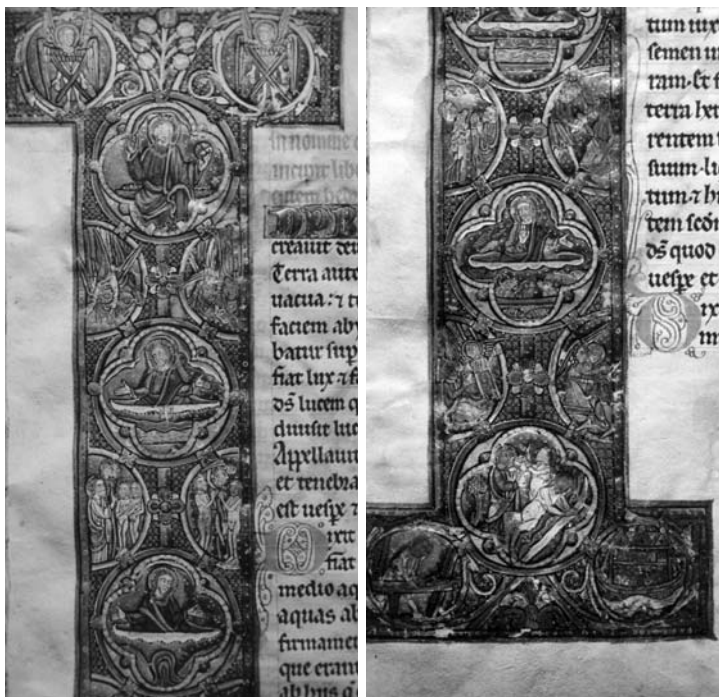 In nomine
incipit lib
creauit deu
Terra aute
uacua: ⁊ t
faciem aby
batur sup
fiat lux ⁊ f
ds̄ lucem q
diuisit luc
Appellauit
et tenebra
est uesp̄e ⁊
Dixit
fiat
medio aq
aquas ab
firmame
que erant
ab hiis q
tum iux
semen in
ram. Et f
terra her
rentem
suum. li
tum ⁊ h
tem scd̄m
ds̄ quod
uesp̄e et
Dix